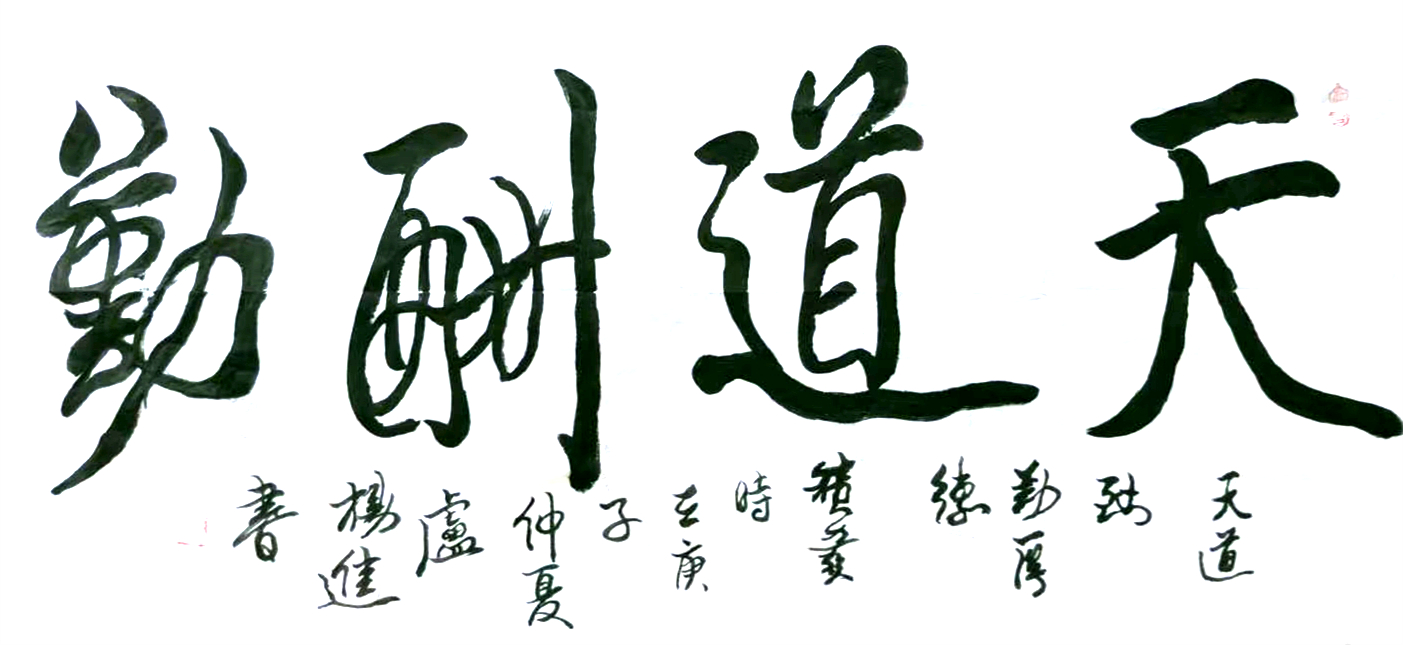 天道酬勤
天道
酬
勤厚
德
積善
時
在庚
子
仲夏
盧
楊進
書